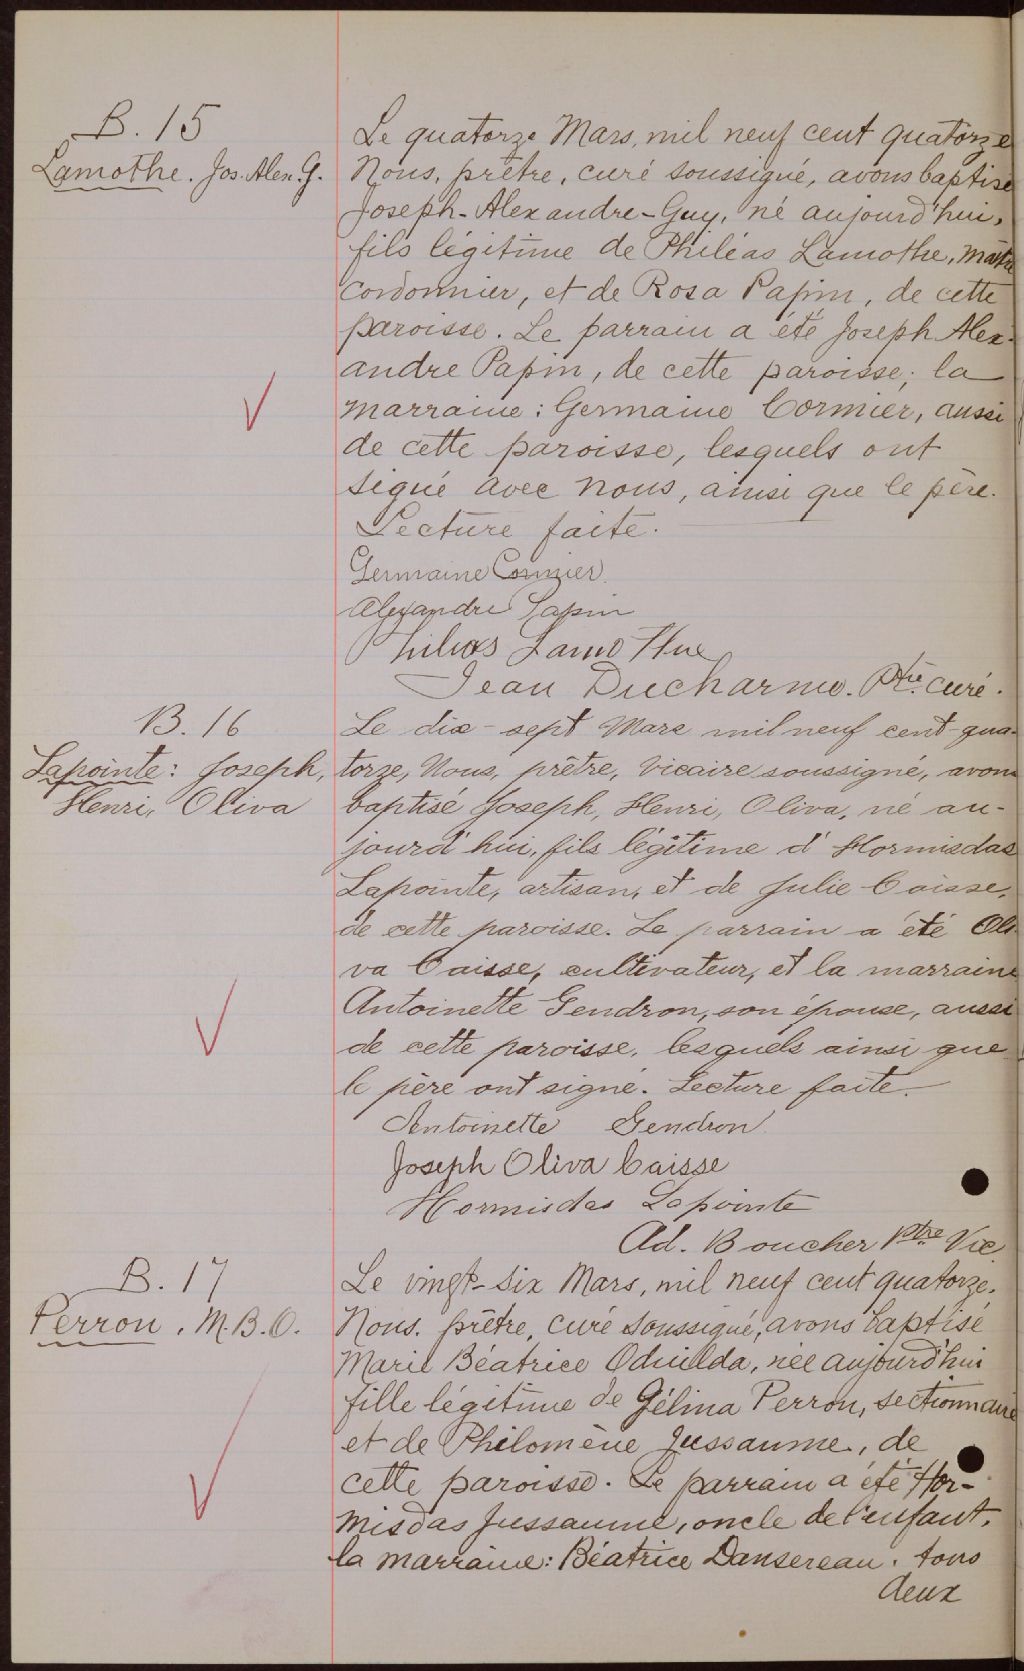 B. 15
Lamothe. Jos. Alex. G.
Le quatorze Mars, mil neuf cent quatorze
Nous, prêtre, curé soussigné, avons baptisé
Joseph-Alexandre-Guy, né aujourd'hui,
fils légitime de Philéas Lamothe, maître
cordonnier, et de Rosa Papin, de cette
paroisse. Le parrain a été Joseph Alex-
andre Papin, de cette paroisse; la
marraine: Germaine Cormier, aussi
de cette paroisse, lesquels ont
signé avec nous, ainsi que le père.
Lecture faite.
Germaine Cormier
Alexandre Papin
Phileas Lamothe
Jean Ducharme. Ptre curé.
B. 16
Lapointe: Joseph,
Henri, Oliva
Le dix-sept Mars mil neuf cent qua-
torze, Nous, prêtre, vicaire soussigné, avons
baptisé Joseph, Henri, Oliva, né au-
jourd'hui, fils légitime d'Hormisdas
Lapointe, artisan, et de Julie Caisse,
de cette paroisse. Le parrain a été Oli-
va Caisse, cultivateur, et la marraine
Antoinette Gendron, son épouse, aussi
de cette paroisse, lesquels ainsi que
le père ont signé. Lecture faite.
Antoinette Gendron
Joseph Oliva Caisse
Hormisdas Lapointe
Ad. Boucher Ptre Vic
B. 17
Perron, M.B.O.
Le vingt-six Mars, mil neuf cent quatorze.
Nous, prêtre, curé soussigné, avons baptisé
Marie Béatrice Oduilda, née aujourd'hui
fille légitime de Gélina Perron, sectionnaire
et de Philomène Jussaume, de
cette paroisse. Le parrain a été Hor-
misdas Jussaume, oncle de l'enfant,
la marraine: Béatrice Dansereau. tous
deux